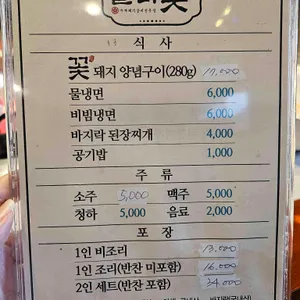 식 사
꽃돼지 양념구이(280g) 17,000
물냉면 6,000
비빔냉면 6,000
바지락 된장찌개 4,000
공기밥 1,000
주 류
소주 5,000 맥주 5,000
청하 5,000 음료 2,000
포 장
1인 비조리 13,000
1인 조리(반찬 미포함) 16,000
2인 세트(반찬 포함) 34,000